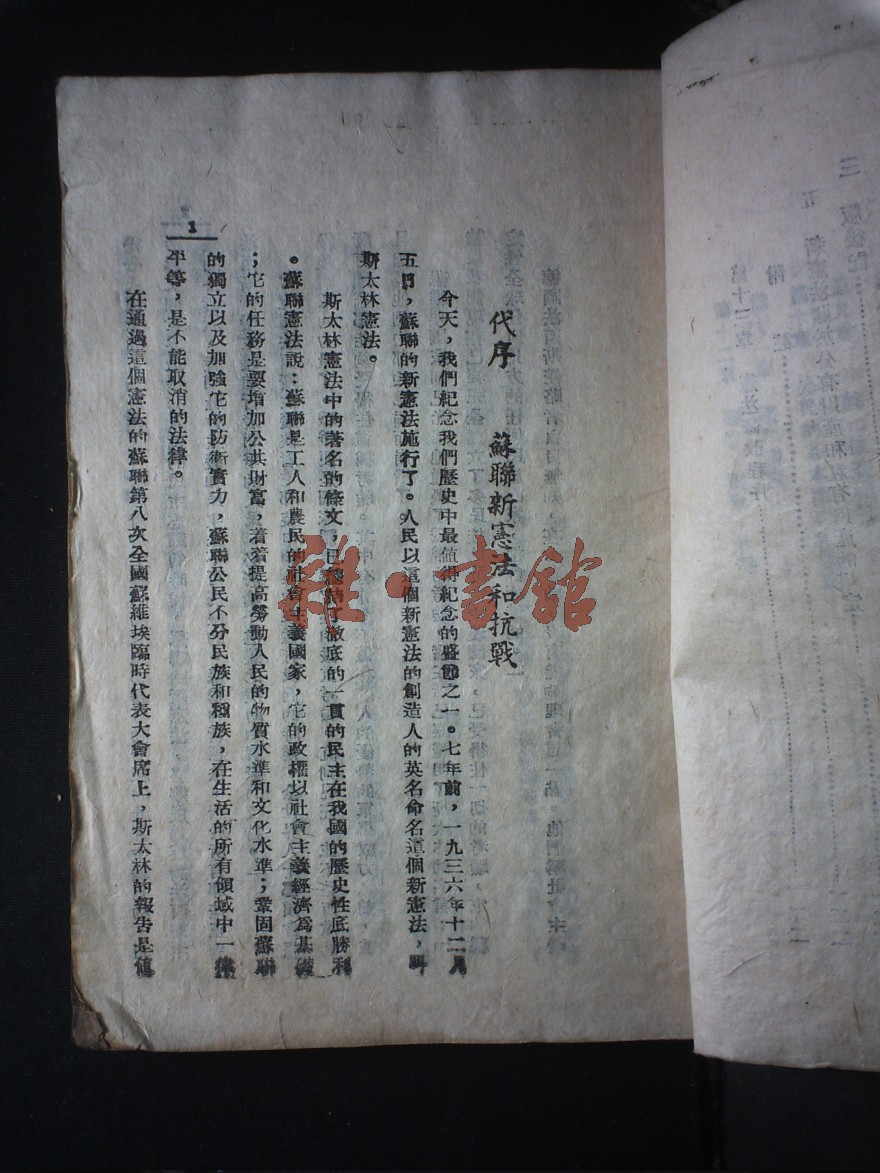 代序　蘇聯新憲法和抗戰
今天，我們紀念我們歷史中最值得紀念的盛節之一。七年前，一九三六年十二月
五日，蘇聯的新憲法施行了。人民以這個新憲法的創造人的英名命名這個新憲法，叫
斯太林憲法。
斯太林憲法中的著名的條文，已總結了徹底的一貫的民主在我國的歷史性底勝利
。蘇聯憲法說：蘇聯是工人和農民的社會主義國家，它的政權以社會主義經濟爲基礎
；它的任務是要增加公共財富，着着提高勞動人民的物質水準和文化水準；鞏固蘇聯
的獨立以及加強它的防衛實力，蘇聯公民不分民族和種族，在生活的所有領域中一律
平等，是不能取消的法律。
在通過這個憲法的蘇聯第八次全國蘇維埃臨時代表大會席上，斯太林的報告是值
1
雜·書館